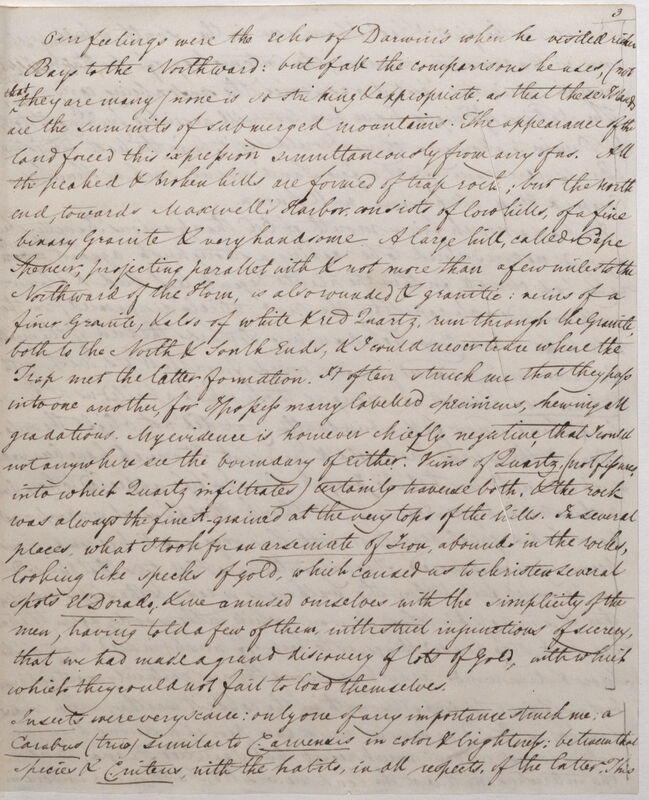 3
Our feelings were the echo of Darwin's when he visited
Bays to the Northward: but of all the comparisons he uses, (
that they are many) none is so striking & appropriate, as that these Islands
are the summits of submerged mountains. The appearance of the
land forced this expression simultaneously from any of us. All
the peaked & broken hills are formed of trap rock; but the north
end, towards Maxwell's Harbor, consists of low hills, of a fine
binary Granite & very handsome. A large hill, called Cape
Spencer, projecting parallel with & not more than a few miles to the
Northward of the Horn, is also rounded & granitic: veins of a
finer Granite, & also of white & red Quartz, run through the Granite,
both to the North & South Ends, & I could never trace where the
Trap met the latter formation. It often struck me that they pass
into one another, for I possess many labelled specimens, shewing all
gradations. My evidence is however chiefly negative that I could
not anywhere see the boundary of either. Veins of Quartz, (not fissures,
into which Quartz infiltrates) certainly traverse both, & the rock
was always the finest-grained at the very tops of the hills. In several
places, what I took for an arseniate of Iron, abounds in the rocks,
looking like specks of gold, which caused us to christen several
spots El Dorado, & we amused ourselves with the simplicity of the
men, having told a few of them, with strict injunctions of secrecy,
that we had made a grand discovery of lots of Gold, with which
which they could not fail to load themselves.
Insects were very scarce: only one of any importance struck me; a
Carabus (true) similar to in color & brightness; between that
species & with the habits, in all respects, of the latter. This